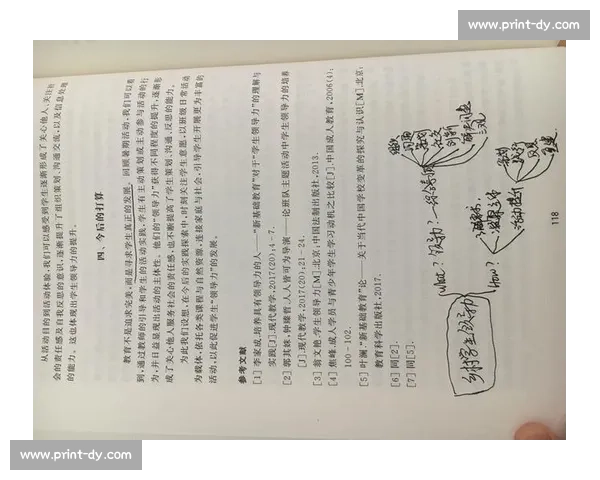 www.print-dy.com
从活动目的到活动体验,我们可以感受到学生逐渐形成了关心他人、关注社
会的责任感及自我反思的意识,逐渐提升了组织策划、沟通交流,以及信息处理
的能力。这也体现出学生领导力的提升。
四、今后的打算
教育不是追求完美,而是寻求学生真正的发展。回顾暑期活动,我们可以看
到,通过教师的引导和学生的活动实践,学生有主动策划或主动参与活动的行
为,并日益显现出活动的主体性。他们的“领导力”获得不同程度的提升,逐渐形
成了关心他人、服务社会的责任感,也不断提高了学生策划、沟通、反思的能力。
为此我们设想,在今后的实践探索中,时刻关注学生意愿,以班级日常活动
为载体,依托各类课程与自然资源,连接家庭与社会,引导学生开展更为丰富的
活动,以此促进学生“领导力”的发展。
参考文献
[1] 李家成.培养具有领导力的人——“新基础教育”对于“学生领导力”的理解与
实践[J].现代教学,2017(20),4-7.
[2] 郭其妹,钟臻哲.人人皆可为导演——论班队主题活动中学生领导力的培养
[J].现代教学,2017(20),21-24.
[3] 翁文艳.学生领导力[M].北京:中国法制出版社,2013.
[4] 焦峰.成人学员与青少年学生学习动机之比较[J].中国成人教育,2006(4):
100-102.
[5] 叶澜.“新基础教育”论——关于当代中国学校变革的探究与认识[M].北京:
教育科学出版社,2017.
[6] 同[2].
[7] 同[5].
乡村学生领导力
What? 领导力?
How?
策划
沟通
118
www.print-dy.com
www.print-dy.com
www.print-dy.com